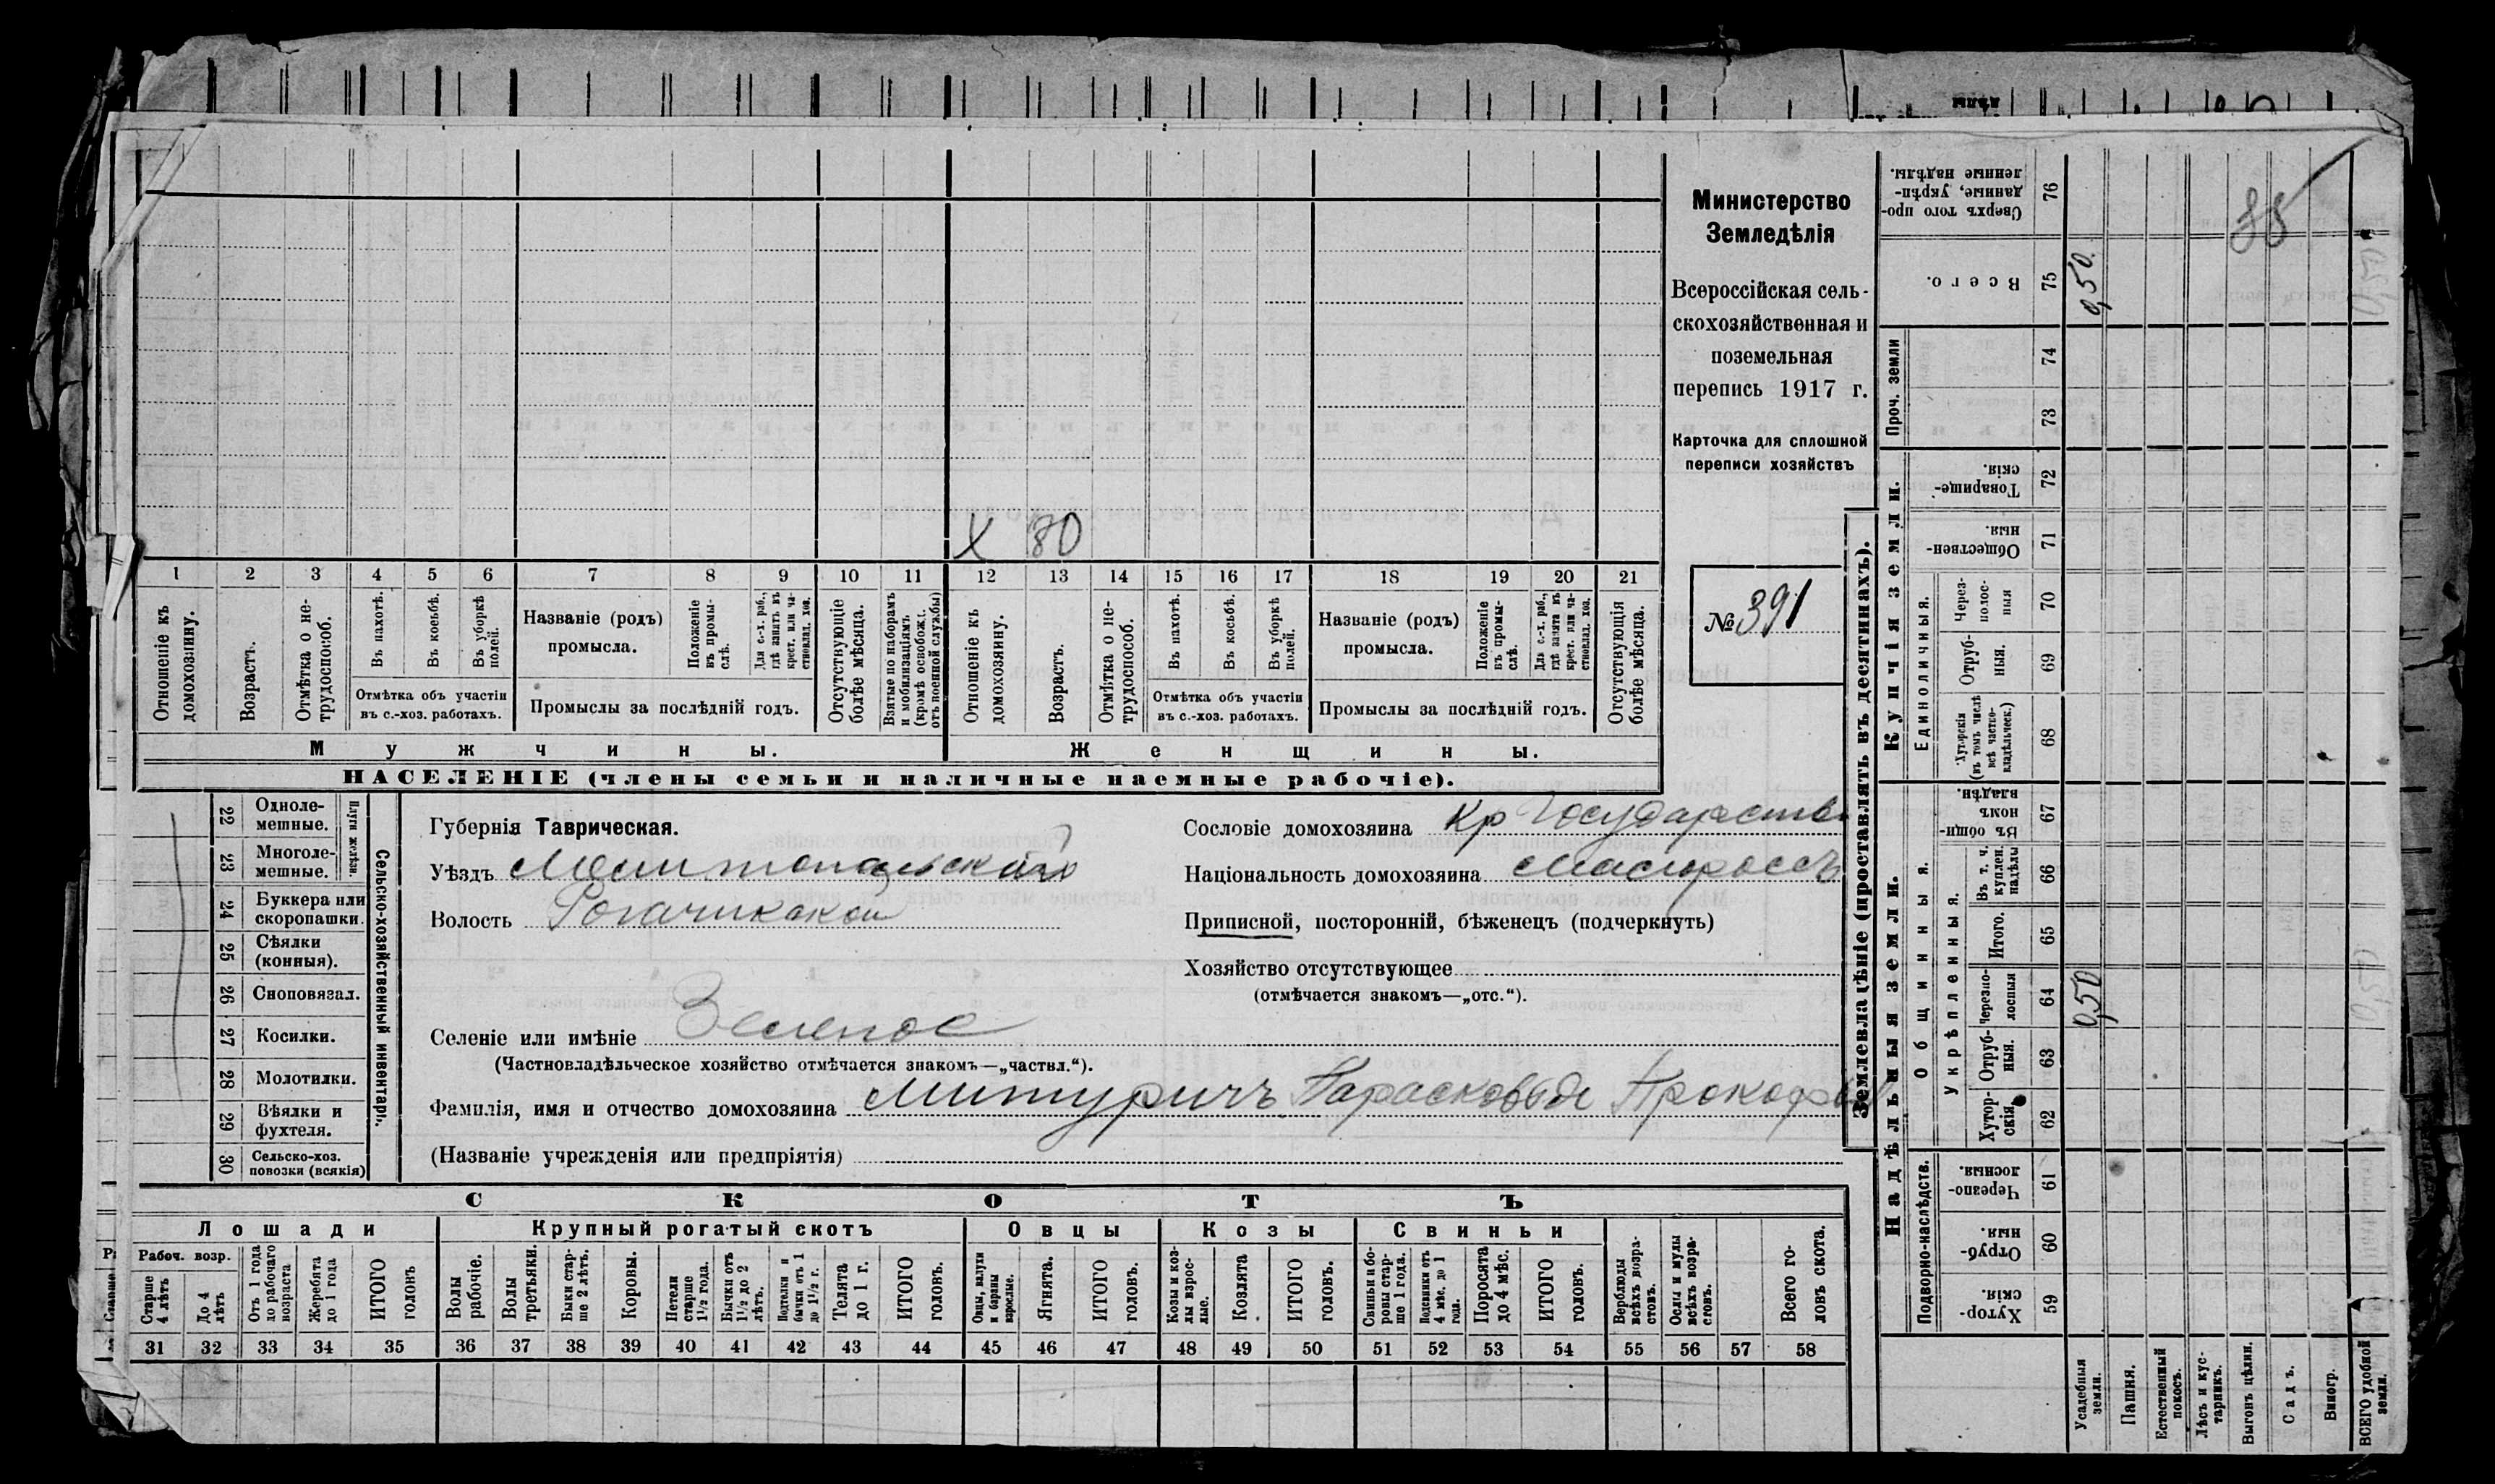 Министерство
Земледѣлія
Всероссійская сель-
скохозяйственная и
поземельная
перепись 1917 г.
Карточка для сплошной
переписи хозяйствъ
№ 391
X 80
1 2 3 4 5 6 7 8 9 10 11 12 13 14 15 16 17 18 19 20 21
Отношеніе къ домохозяину.
Возрастъ.
Отмѣтка о не-трудоспособ.
Въ пахотѣ.
Въ косьбѣ.
Въ уборкѣ полей.
Отмѣтка объ участіи
въ с.-хоз. работахъ.
Названіе (родъ)
промысла.
Положеніе въ промы-слѣ.
Для с.-х. раб., гдѣ занятъ въ крест. или ча-стновлад. хоз.
Промыслы за послѣдній годъ.
Отсутствующіе болѣе мѣсяца.
Взятые по наборамъ и мобилизаціямъ (кромѣ освобожд. отъ военной службы)
Отношеніе къ домохозяину.
Возрастъ.
Отмѣтка о не-трудоспособ.
Въ пахотѣ.
Въ косьбѣ.
Въ уборкѣ полей.
Отмѣтка объ участіи
въ с.-хоз. работахъ.
Названіе (родъ)
промысла.
Положеніе въ промы-слѣ.
Для с.-х. раб., гдѣ занята въ крест. или ча-стновлад. хоз.
Промыслы за послѣдній годъ.
Отсутствующія болѣе мѣсяца.
Мужчины. Женщины.
НАСЕЛЕНІЕ (члены семьи и наличные наемные рабочіе).
22 Одноле-мешные.
23 Многоле-мешные.
Плуги желѣзн.
24 Буккера или скоропашки.
25 Сѣялки (конныя).
26 Сноповязал.
27 Косилки.
28 Молотилки.
29 Вѣялки и фухтеля.
30 Сельско-хоз. повозки (всякія)
Сельско-хозяйственный инвентарь.
Губернія Таврическая.
Уѣздъ Мелитопольскій
Волость Рогачикской
Селеніе или имѣніе Зеленое
(Частновладѣльческое хозяйство отмѣчается знакомъ—„частвл.“).
Фамилія, имя и отчество домохозяина Митуричъ Парасковья Прокофьев
(Названіе учрежденія или предпріятія)
Сословіе домохозяина Кр Государствен
Національность домохозяина малороссъ
Приписной, посторонній, бѣженецъ (подчеркнуть)
Хозяйство отсутствующее
(отмѣчается знакомъ—„отс.“).
СКОТЪ
Лошади Крупный рогатый скотъ Овцы Козы Свиньи
Рабоч. возр.
Старше 4 лѣтъ
До 4 лѣтъ
Отъ 1 года до рабочаго возраста
Жеребята до 1 года
ИТОГО головъ
Волы рабочіе.
Волы третьяки.
Быки стар-ше 2 лѣтъ.
Коровы.
Нетели старше 1½ года.
Бычки отъ 1½ до 2 лѣтъ.
Подтелки и бычки отъ 1 до 1½ г.
Телята до 1 г.
ИТОГО головъ.
Овцы, валухи и бараны взрослые.
Ягнята.
ИТОГО головъ.
Козы и коз-лы взрос-лые.
Козлята
ИТОГО головъ.
Свиньи и бо-ровы стар-ше 1 года.
Подсвинки отъ 4 мѣс. до 1 года.
Поросята до 4 мѣс.
ИТОГО головъ.
Верблюды всѣхъ возра-стовъ.
Ослы и мулы всѣхъ возра-стовъ.
Всего го-ловъ скота.
31 32 33 34 35 36 37 38 39 40 41 42 43 44 45 46 47 48 49 50 51 52 53 54 55 56 57 58
Землевладѣніе (проставлять въ десятинахъ).
Надѣльныя земли. Купчія земли. Проч. земли
Подворно-наслѣдств.
Общинныя.
Укрѣпленныя.
Единоличныя.
Сверхъ того про-данные, укрѣп-ленные надѣлы. 76
Всего. 75 0,50
88
74
73
Товарище-скія. 72
Обществен-ныя. 71
Через-полос-ныя 70
Отруб-ныя. 69
Хуторскія (въ томъ числѣ всѣ частно-владѣльческ.) 68
Въ общи-номъ владѣн. 67
Въ т. ч. куплен. надѣлы 66
Итого. 65
Черезпо-лосныя 64 0,50
Отруб-ныя. 63
Хутор-скія. 62
Черезпо-лосныя. 61
Отруб-ныя. 60
Хутор-скія. 59
Усадебныя земли.
Пашня.
Естественный покосъ.
Лѣсъ и кус-тарникъ.
Выгонъ цѣлин.
Садъ.
Виногр.
ВСЕГО удобной земли.